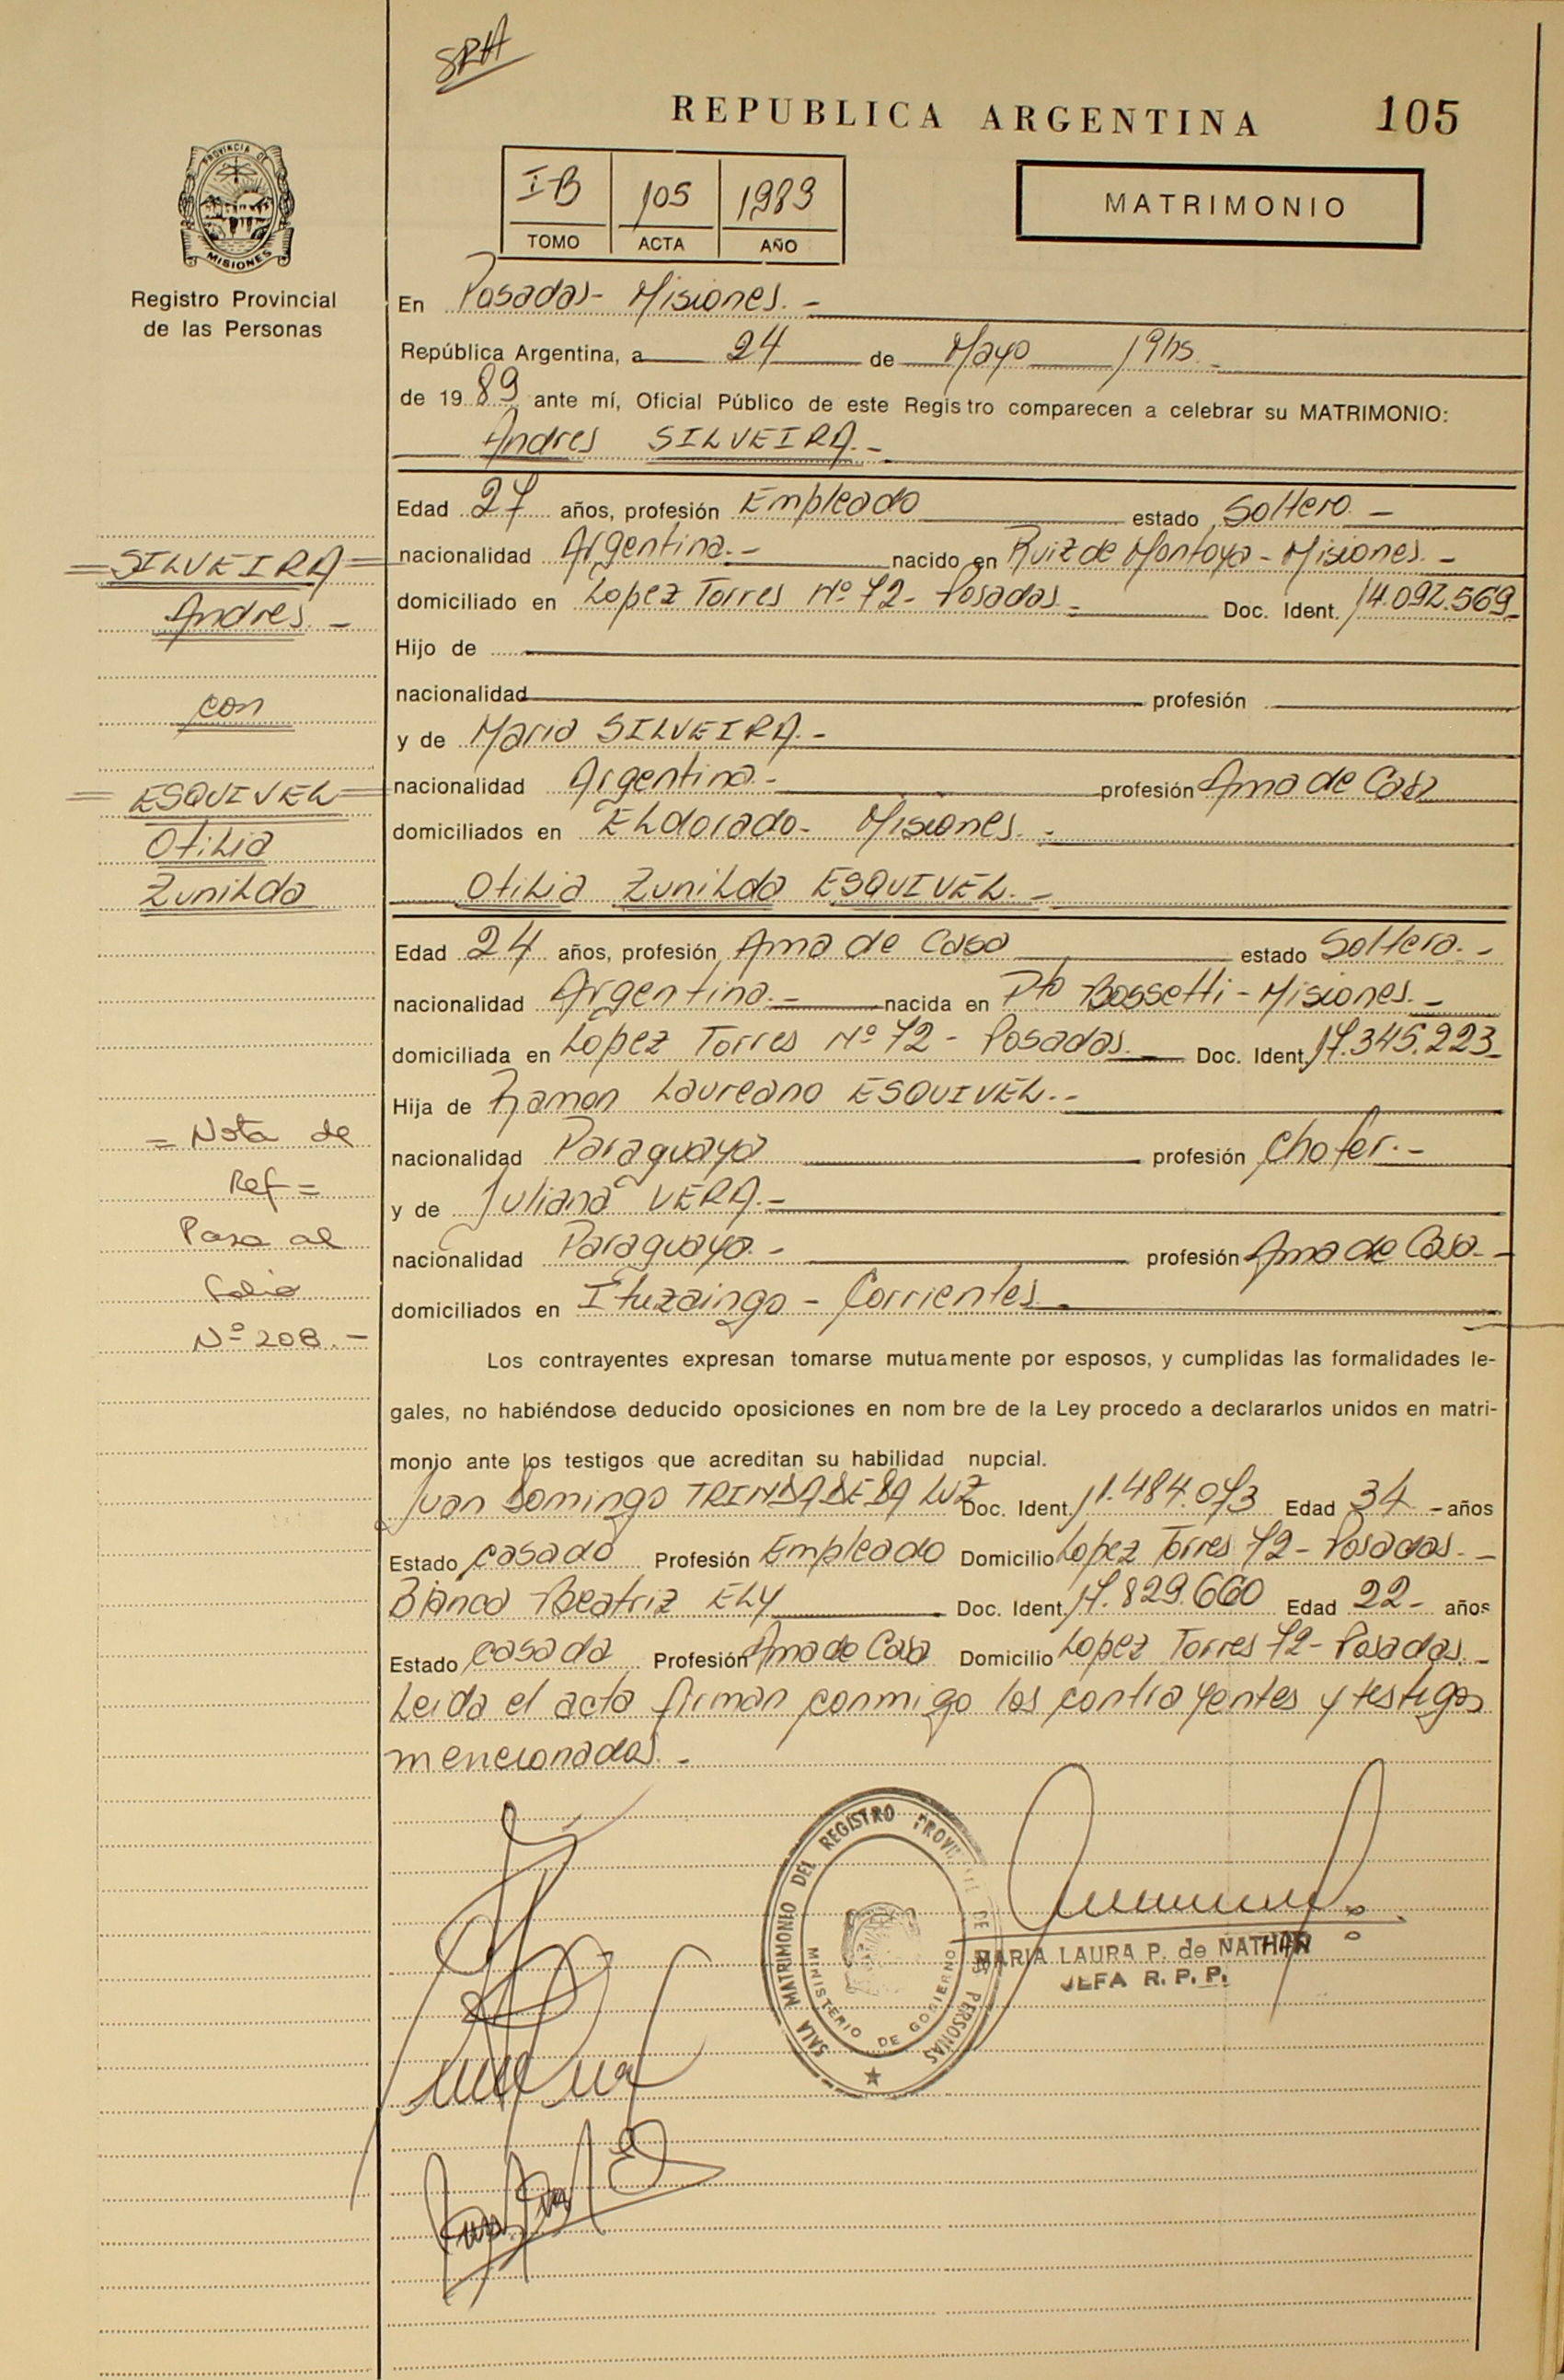 SRA
REPUBLICA ARGENTINA 105
I-B 105 1989
TOMO ACTA AÑO
MATRIMONIO
PROVINCIA DE MISIONES
Registro Provincial
de las Personas
En Posadas- Misiones.-
República Argentina, a 24 de Mayo 19hs.-
de 1989 ante mí, Oficial Público de este Registro comparecen a celebrar su MATRIMONIO:
Andres SILVEIRA.-
Edad 27 años, profesión Empleado estado Soltero.-
nacionalidad Argentina.- nacido en Ruiz de Montoya - Misiones.-
domiciliado en Lopez Torres Nº 72 - Posadas.- Doc. Ident. 14.092.569-
Hijo de
nacionalidad profesión
y de Maria SILVEIRA.-
nacionalidad Argentina.- profesión Ama de Casa
domiciliados en ELdorado- Misiones.-
Otilia Zunilda ESQUIVEL.-
Edad 24 años, profesión Ama de Casa estado Soltera.-
nacionalidad Argentina.- nacida en Pto Bossetti - Misiones.-
domiciliada en Lopez Torres Nº 72 - Posadas.- Doc. Ident. 17.345.223-
Hija de Ramon Laureano ESQUIVEL.-
nacionalidad Paraguaya profesión Chofer.-
y de Juliana VERA.-
nacionalidad Paraguaya.- profesión Ama de Casa.-
domiciliados en Ituzaingo - Corrientes.-
Los contrayentes expresan tomarse mutuamente por esposos, y cumplidas las formalidades le-
gales, no habiéndose deducido oposiciones en nom bre de la Ley procedo a declararlos unidos en matri-
monio ante los testigos que acreditan su habilidad nupcial.
Juan Domingo TRINDADE DA LUZ Doc. Ident. 11.484.073 Edad 34 - años
Estado casado Profesión Empleado Domicilio Lopez Torres 72 - Posadas.-
Blanca Beatriz ELY Doc. Ident. 17.829.660 Edad 22- años
Estado casada Profesión Ama de Casa Domicilio Lopez Torres 72 - Posadas.-
Leida el acta firman conmigo los contrayentes y testigos
mencionados.-
=SILVEIRA=
Andres.-
con
=ESQUIVEL=
Otilia
Zunilda
= Nota de
Ref =
Pasa al
folio
Nº 208.-
SALA MATRIMONIO DEL REGISTRO PROVINCIAL DE LAS PERSONAS
MINISTERIO DE GOBIERNO
MARIA LAURA P. de NATHAN
JEFA R. P. P.